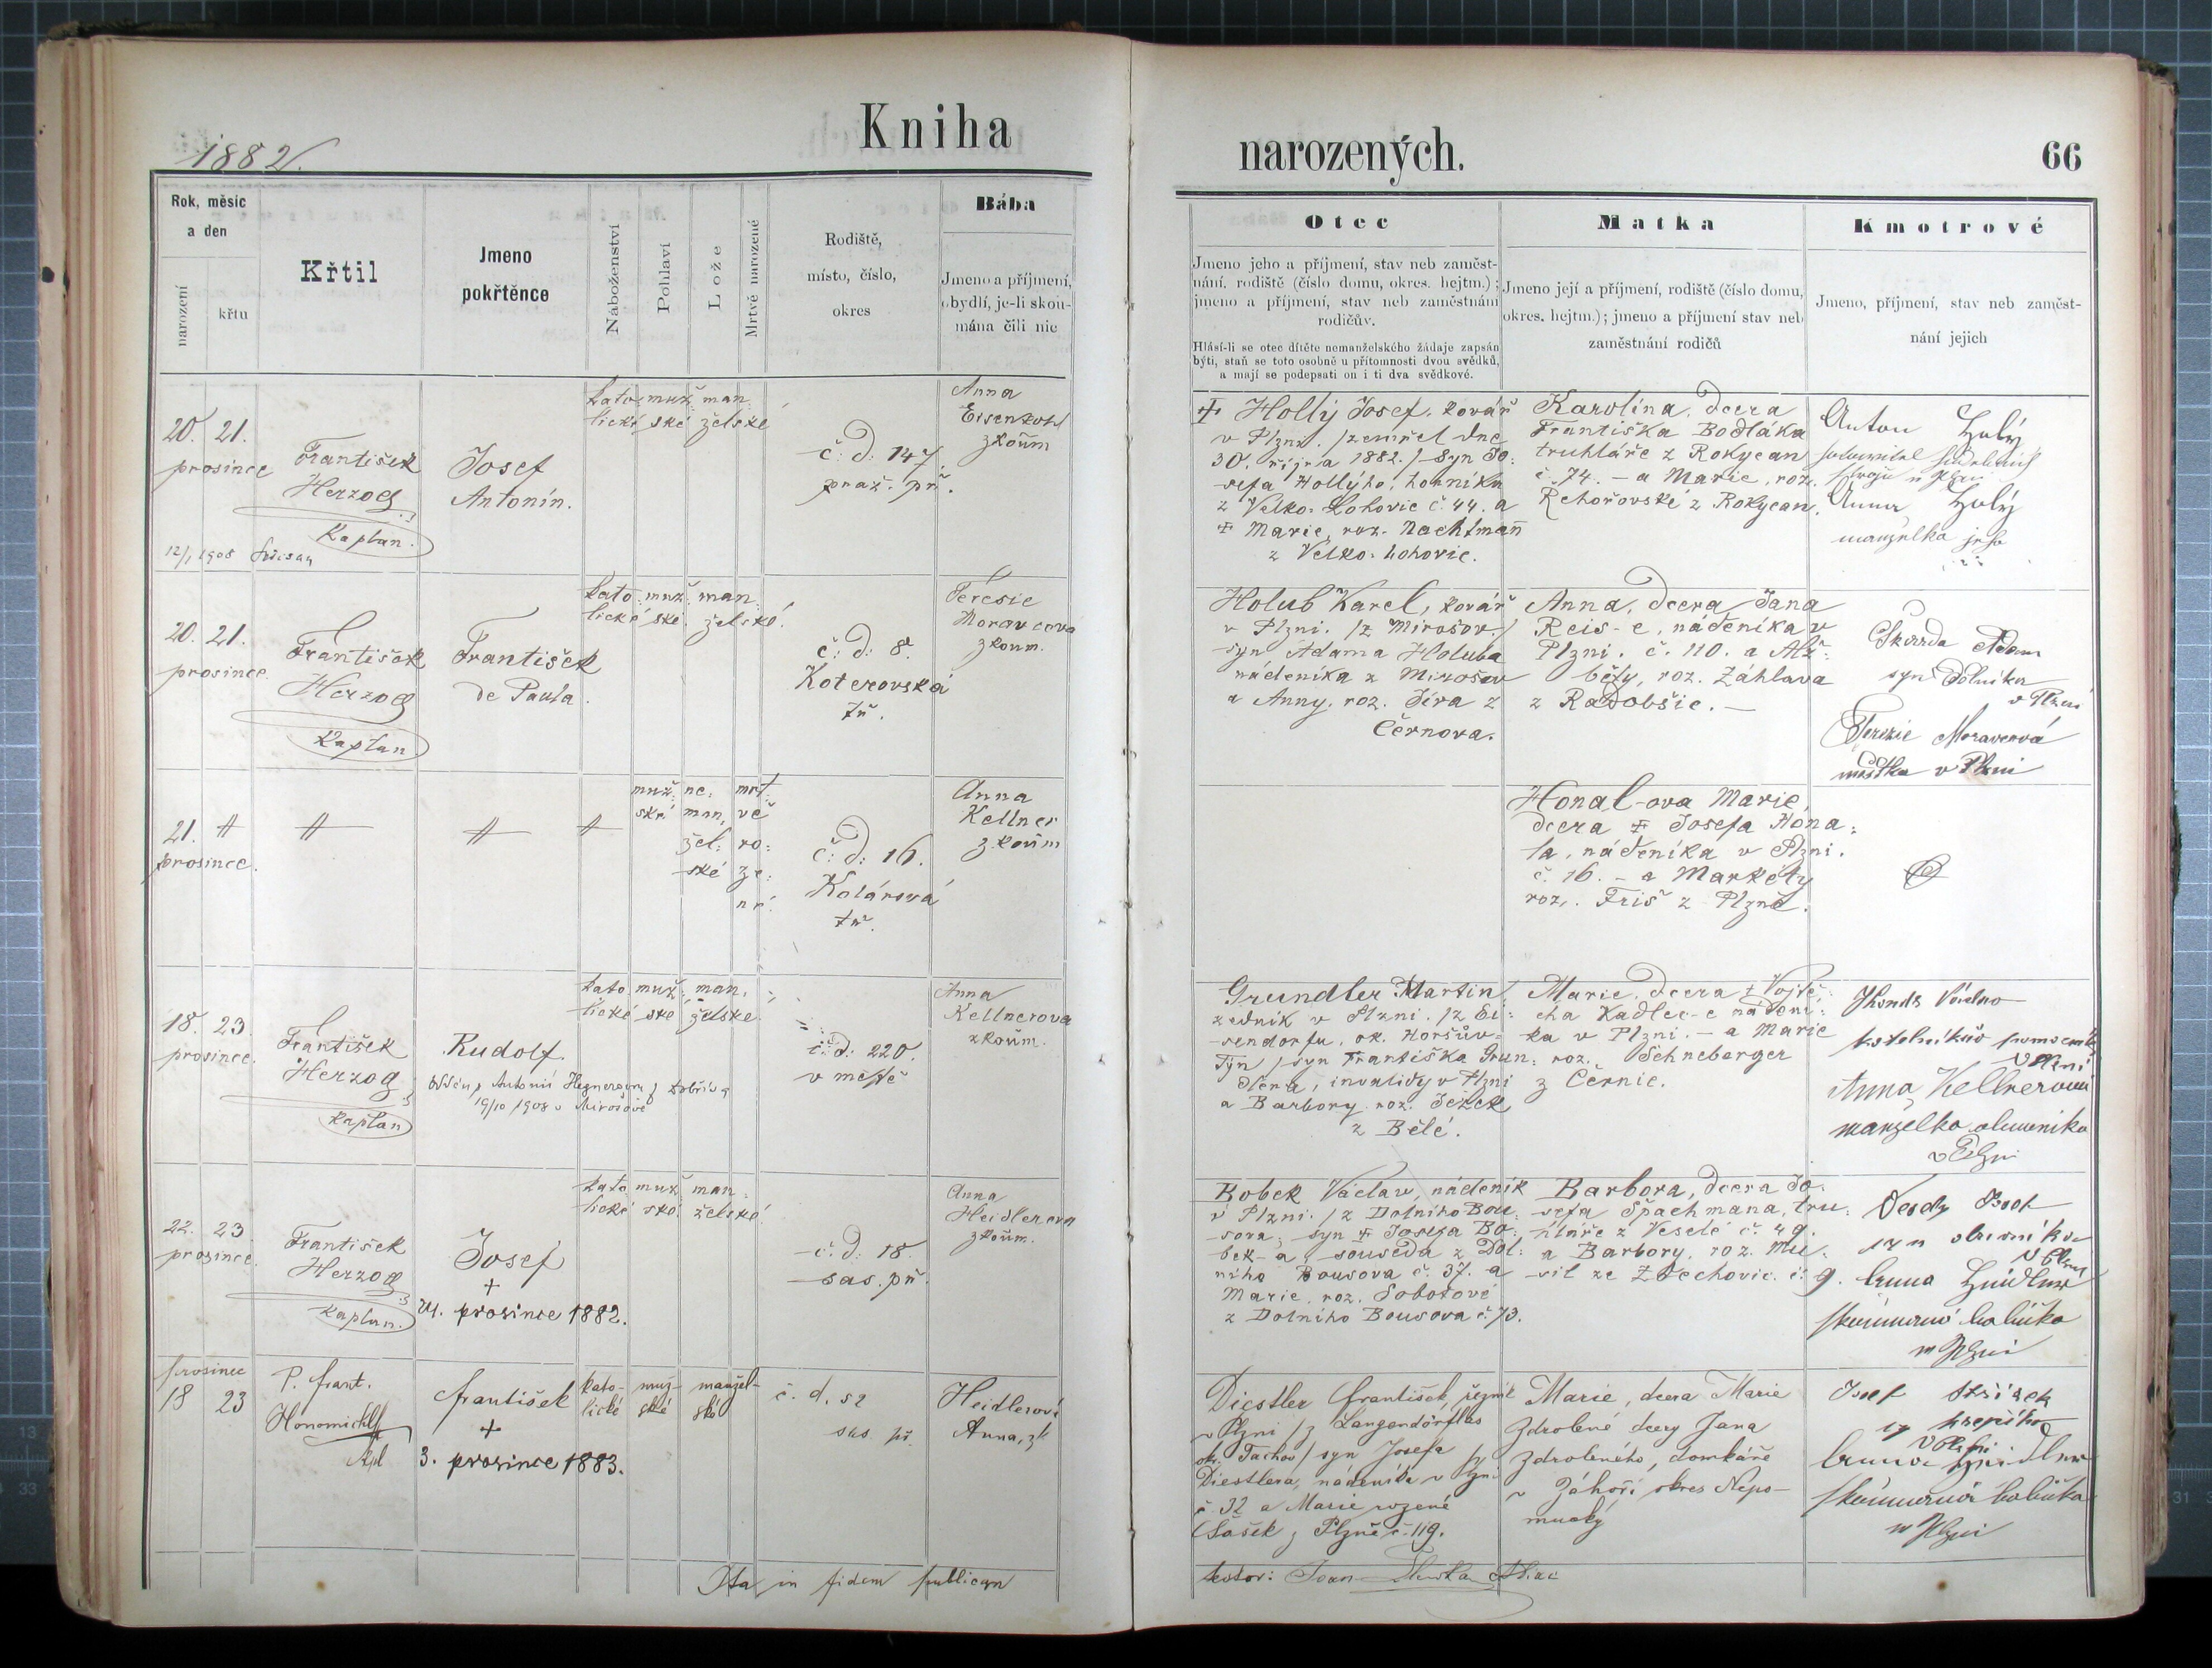 1882.
Kniha
narozených.
66
Rok, měsíc
a den
narození
křtu
Křtil
Jmeno
pokřtěnce
Náboženství
Pohlaví
Lože
Mrtvě narozené
Rodiště,
místo, číslo,
okres
Bába
Jmeno a příjmení,
obydlí, je-li skou-
mána čili nic
Otec
Jmeno jeho a příjmení, stav neb zaměst-
nání, rodiště (číslo domu, okres. hejtm.);
jmeno a příjmení, stav neb zaměstnání
rodičův.
Hlásí-li se otec dítěte nemanželského žádaje zapsán
býti, staň se toto osobně u přítomnosti dvou svědků,
a mají se podepsati on i ti dva svědkové.
Matka
Jmeno její a příjmení, rodiště (číslo domu,
okres. hejtm.); jmeno a příjmení stav neb
zaměstnání rodičů
Kmotrové
Jmeno, příjmení, stav neb zaměst-
nání jejich
20. 21.
prosince
František
Herzog
Kaplan.
12/1 1908
Josef
Antonín.
kato: muž: man
lické ské želské
č: d: 147.
praž. př.
Anna
Eisenkohl
zkoum
‡ Hollý Josef, kovář
v Plzni. /zemřel dne
30. října 1882./ Syn Jo:
sefa Hollýho, horníka
z Velko. Lohovic č. 44. a
‡ Marie, roz. Nachtmañ
z Velko. Lohovic.
Karolína, dcera
Františka Bodláka
truhláře z Rokycan
č. 74. – a Marie, roz.
Řehořovské z Rokycan.
Anton Holý
Anna Holý
manželka jeho
20. 21.
prosince.
František
Herzog
Kaplan
František
de Paula.
kato: muž: man:
lické ské. želské.
č: d: 8.
Koterovská
tř.
Teresie
Moravcová
zkoum.
Holub Karel, kovář
v Plzni. /z Mirošov./
syn Adama Holuba
nádeníka z Mirošov
a Anny, roz. Jíra z
Černova.
Anna, dcera Jana
Reis-e, nádeníka v
Plzni. č. 110. a Alž:
běty, roz. Záhlava
z Radobšic. –
Škarda Adam
syn dělníka
v Plzni
Terezie Moravcová
v Plzni
21. #
prosince.
#
#
#
muž: ne: mrt
ské man, vě
žel: ro:
ské ze:
né.
č: d: 16.
Kolárová
tř.
Anna
Kellner
zkoum
Honal-ova Marie,
dcera ‡ Josefa Hona:
la, nádeníka v Plzni.
č. 16. – a Markéty
roz. Friš z Plzně.
18. 23.
prosince.
František
Herzog
Kaplan
Rudolf.
Antonií Hegnerovou z Dobříva
19/10 1908 v Mirošově
kato: muž: man:
lické ské želské.
č: d: 220.
v městě
Anna
Kellnerova
zkoum.
Grundler Martin
zedník v Plzni. /z Ei:
sendorfu, ok. Horšův-
Týn/ syn Františka Grun:
dlera, invalidy v Plzni
a Barbory roz. Ježek
z Bělé.
Marie, dcera ‡ Vojtě:
cha Kadlec-e nádení:
ka v Plzni. – a Marie
roz. Schneberger
z Černic.
v Plzni
Anna Kellnerová
manželka
v Plzni
22. 23.
prosince.
František
Herzog
Kaplan.
Josef
+
24. prosince 1882.
kato muž man:
lické ské. želské.
č: d: 18.
sas. př.
Anna
Heidlerova
zkoum.
Bobek Václav, nádeník
v Plzni. /z Dolního Bou:
sova, syn ‡ Josefa Bo:
bek-a, souseda z Dol:
ního Bousova č. 37. a
Marie, roz. Sobotové
z Dolního Bousova č. 73.
Barbora, dcera Jo:
sefa Špachmana, tru:
hláře z Veselé č. 49.
a Barbory, roz. Mu:
sil ze Zdechovic. č: 9.
v Plzni
Anna Heidler
zkoumaná babička
v Plzni
prosinec
18 23
P. Frant.
Honomichl
František
+
3. prosince 1883.
kato- muž- manžel-
lické ské ské
č. d. 52
sas. př.
Heidlerová
Anna, zk
Diestler František, řezník
v Plzni /z Langendörflas
ok. Tachov/ syn Josefa
Diestlera, nádeníka v Plzni
č. 32 a Marie rozené
Šašek z Plzně č. 119.
Marie, dcera Marie
Zdrobené dcery Jana
Zdrobeného, domkáře
v Záhoří okres Nepo-
mucký
Josef
v Plzni
Anna Heidler
zkoumaná babička
v Plzni
Ita in fidem publicam
testor: Joan